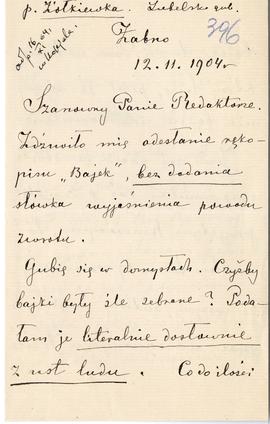 p. Żółkiewka. Lubelsk. gub.
396
Żabno
12.11.1904 r
Szanowny Panie Redaktorze.
Zdziwiło mię odesłanie ręko-
pisu „Bajek”, bez dodania
słówka wyjaśnienia powodu
zwrotu.
Gubię się w domysłach. Czyżby
bajki były źle zebrane? Poda-
łam je literalnie dosłownie
z ust ludu. Co do ilości